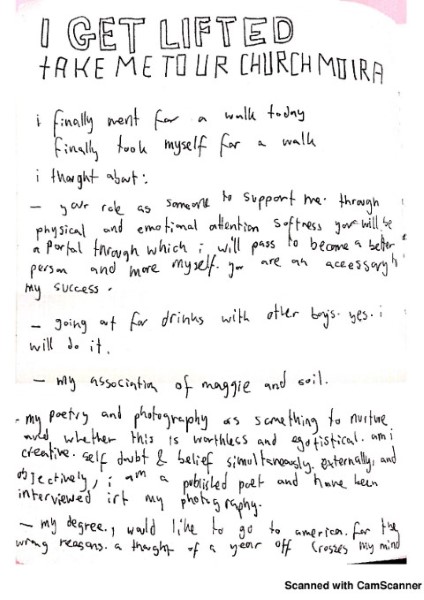 I GET LIFTED
TAKE ME TO UR CHURCH MOIRA
i finally went for a walk today
finally took myself for a walk
i thought about:
- your role as someone to support me. through
physical and emotional attention softness you will be
a portal through which i will pass to become a better
person and more myself. you are an accessory
my success.
- going out for drinks with other boys. yes. i
will do it.
- my association of maggie and soil.
- my poetry and photography as something to nurture
and whether this is worthless and egotistical. am i
creative. self doubt & belief simultaneously. externally, and
objectively, i am a published poet and have been
interviewed irt my photography.
- my degree., would like to go to america. for the
wrong reasons. a thought of a year off crosses my mind
Scanned with CamScanner